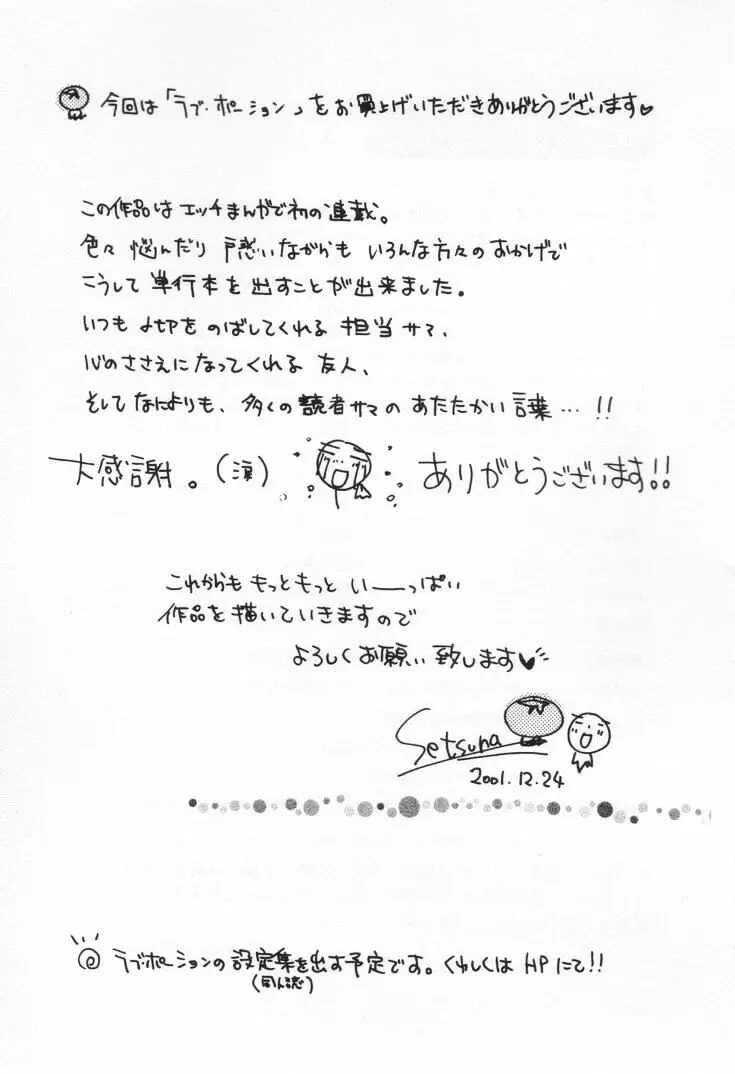 今回は「ラブ・ポーション」をお買上げいただきありがとうございます♥
この作品はエッチまんがで初の連載。
色々 悩んだり 戸惑いながらも いろんな方々のおかげで
こうして 単行本を 出すことが出来ました。
いつも 〆切を のばしてくれる 担当サマ、
心のささえになってくれる 友人、
そしてなによりも、多くの読者サマの あたたかい言葉…!!
大感謝。(涙) ありがとうございます!!
これからも もっともっと い――っぱい
作品を 描いていきますので
よろしくお願い致します♥
Setsuna
2001.12.24
ラブ・ポーションの 設定集を出す予定です。くわしくは HPにて!!
(同人誌)